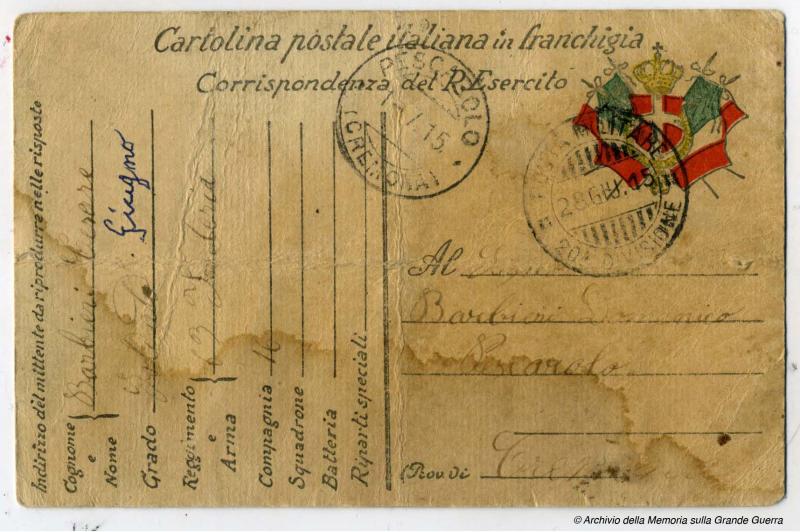 Cartolina postale italiana in franchigia
Corrispondenza del R. Esercito
PESCAROLO
15.
(CREMONA)
POSTA MILITARE
28.GIU.15
20ª DIVISIONE
Indirizzo del mittente da riprodurre nelle risposte
Cognome e Nome { Barbieri
Grado
Giugno
Reggimento e Arma {
Compagnia
Squadrone
Batteria
Riparti speciali
Al
Barbieri Domenico
Pescarolo
(Prov. di
© Archivio della Memoria sulla Grande Guerra